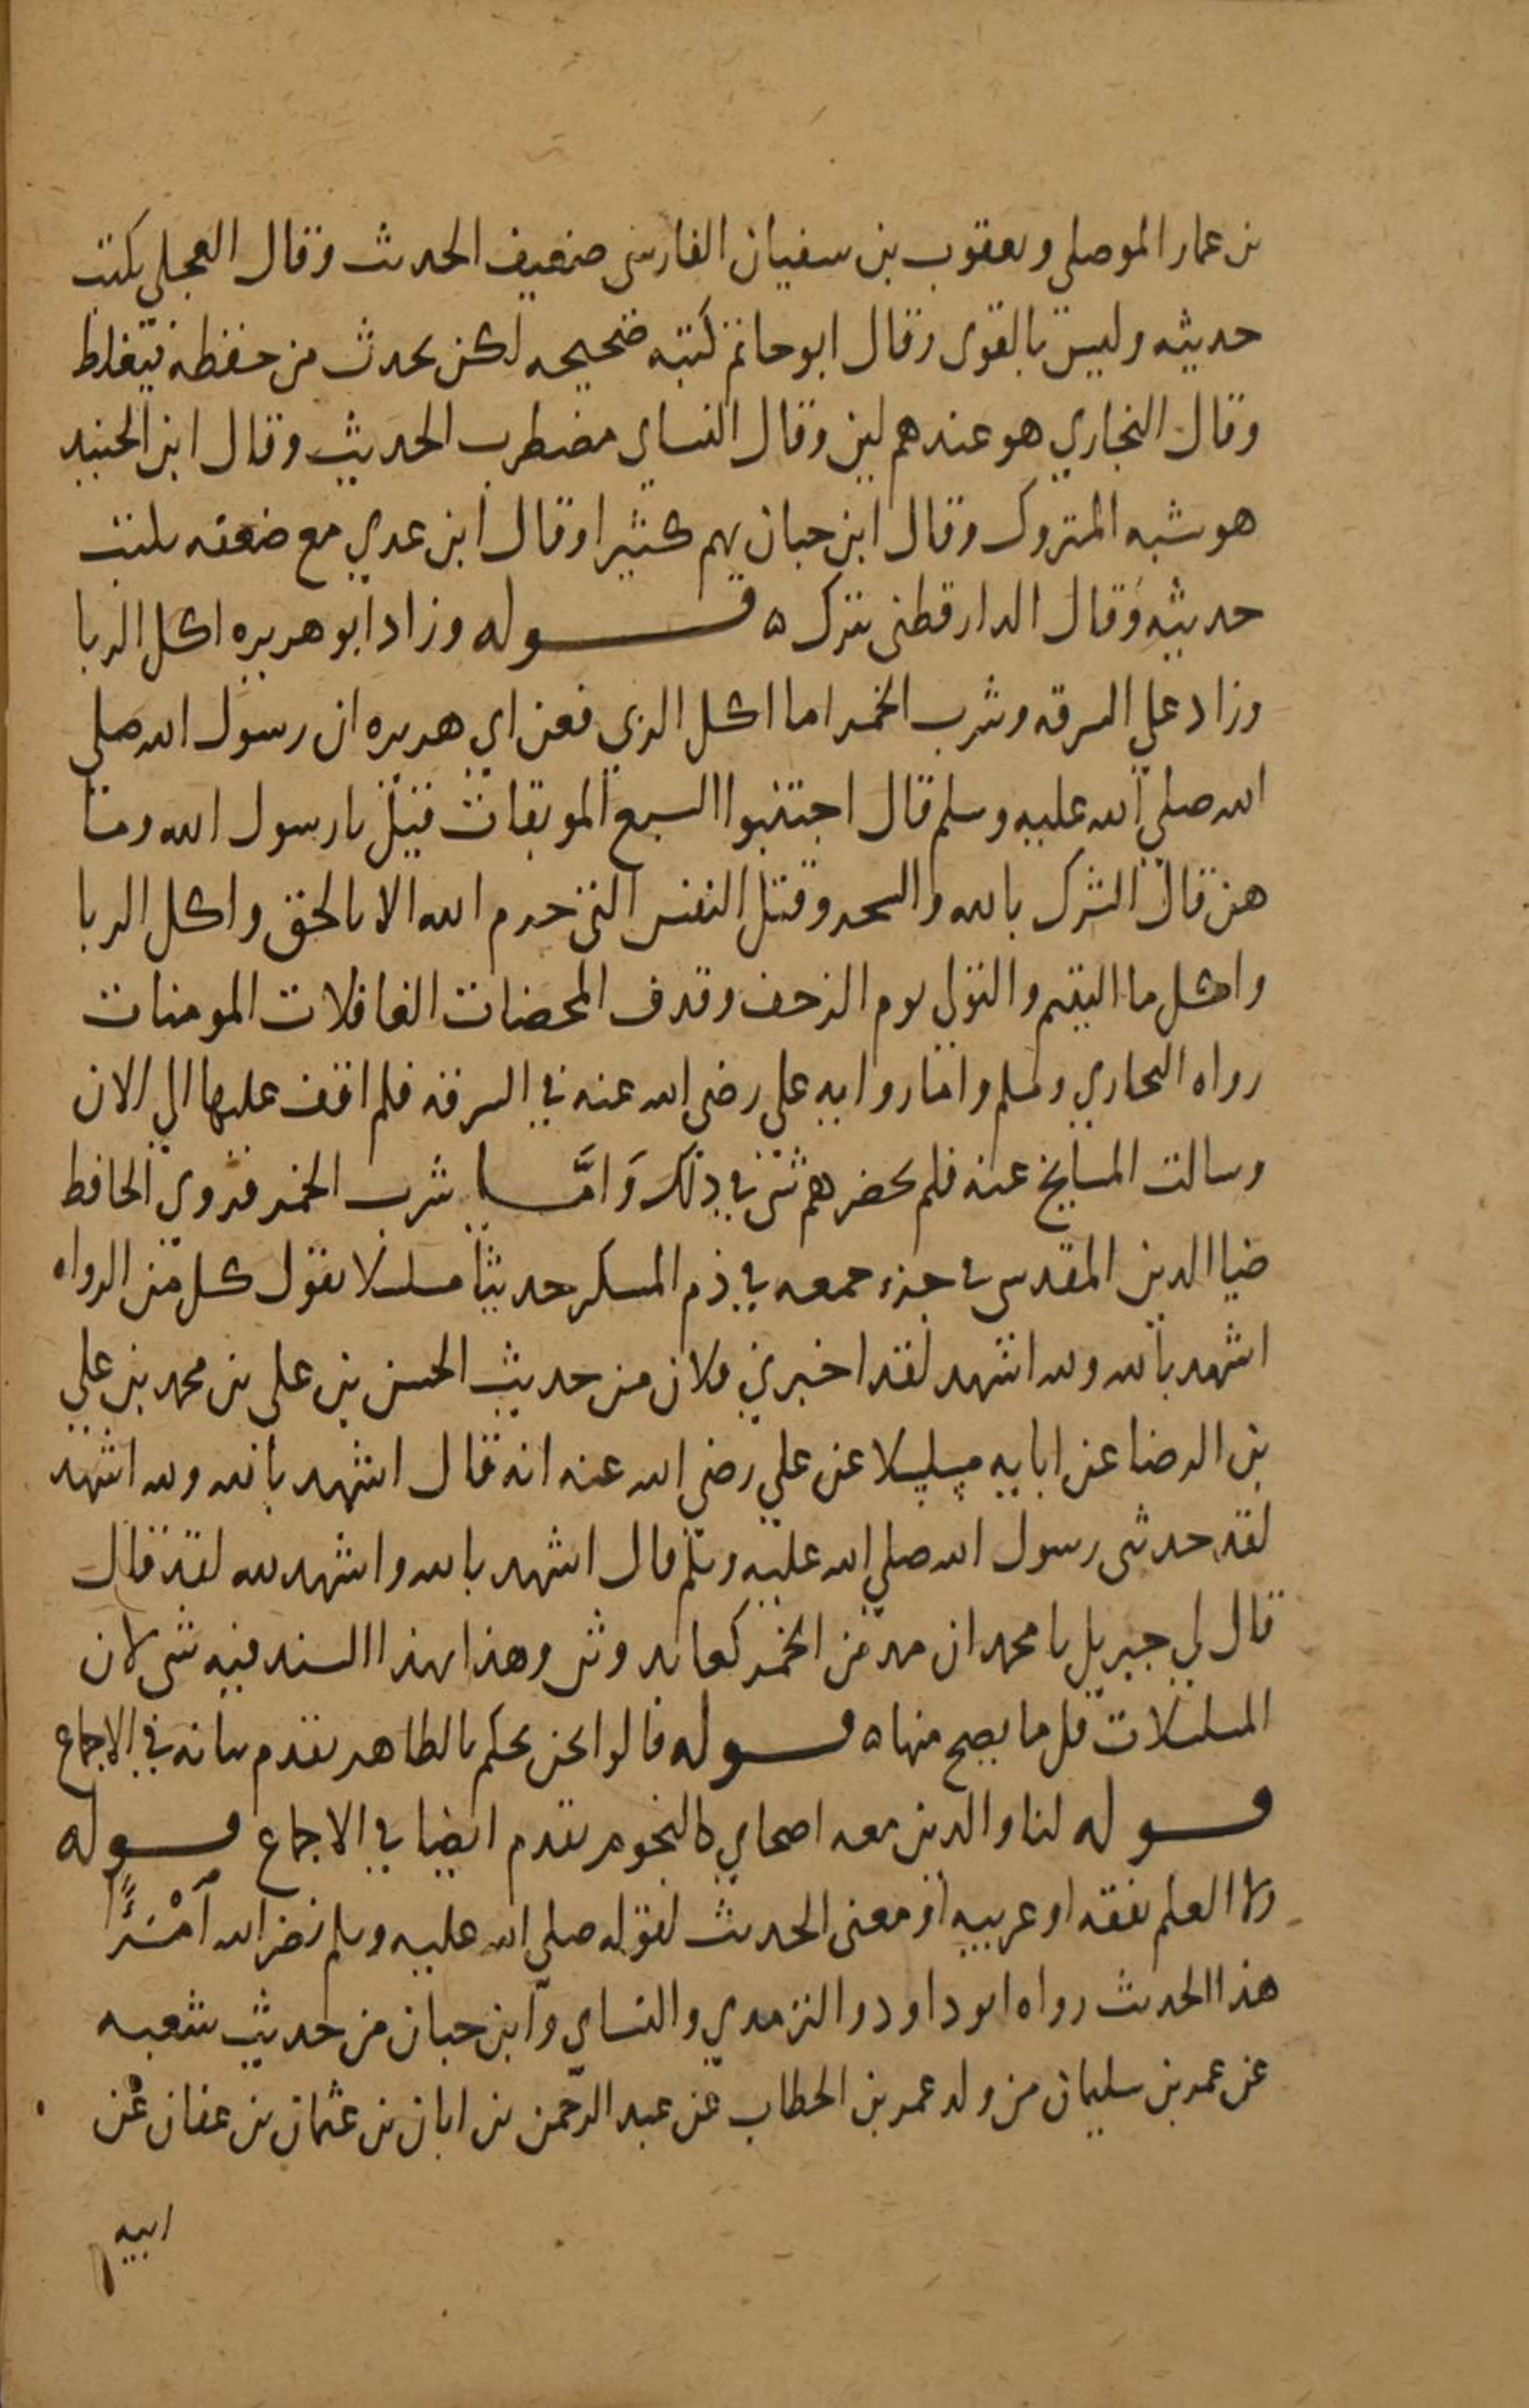 بن عمار الموصلي ويعقوب بن سفيان الفارسي ضعيف الحديث وقال العجلي يكتب
حديثه وليس بالقوي وقال ابو حاتم كتبه صحيحه لكن يحدث من حفظه فيغلط
وقال البخاري هو عندهم لين وقال النساي مضطرب الحديث وقال ابن الجنيد
هو شبه المتروك وقال ابن حبان يهم كثيرا وقال ابن عدي مع ضعفه يكتب
حديثه وقال الدارقطني يترك ه قوله وزاد ابو هريره اكل الربا
وزاد علي السرقه وشرب الخمر اما اكل الربي فعن ابي هريره ان رسول الله صلي
الله صلي الله عليه وسلم قال اجتنبوا السبع الموبقات قيل يا رسول الله وما
هن قال الشرك بالله والسحر وقتل النفس التي حرم الله الا بالحق واكل الربا
واكل ما اليتيم والتولي يوم الزحف وقدف المحصنات الغافلات المومنات
رواه البخاري ومسلم واما روايه علي رضي الله عنه في السرقه فلم اقف عليها الي الان
وسالت المشايخ عنه فلم يحضرهم شي في ذلك وَامَّا شرب الخمر فروي الحافظ
ضيا الدين المقدسي في جزء جمعه في ذم المسكر حديثا مسلسلا يقول كل من الرواه
اشهد بالله ولله اشهد لقد اخبرني فلان من حديث الحسن بن علي بن محمد بن علي
بن الرضا عن ابايه مسلسلا عن علي رضي الله عنه انه قال اشهد بالله ولله اشهد
لقد حدثني رسول الله صلي الله عليه وسلم قال اشهد بالله واشهد لله لقد قال
قال لي جبريل يا محمد ان مدمن الخمر كعابد وثن وهذا بهذا السند فيه شي لان
المسلسلات قل ما يصح منها ه قوله قالوا نحن نحكم بالظاهر تقدم بيانه في الاجماع
قوله لنا والدين معه اصحابي كالنجوم تقدم ايضا في الاجماع قوله
ولا العلم بفقه او عربيه او معنى الحديث لقوله صلي الله عليه وسلم نضر الله اَمْرَءًا
هذا الحديث رواه ابو داود والترمدي والنساي وابن حبان من حديث شعبه
عن عمر بن سليمان من ولد عمر بن الخطاب عن عبد الرحمن بن ابان بن عثمان بن عفان عن
ابيه